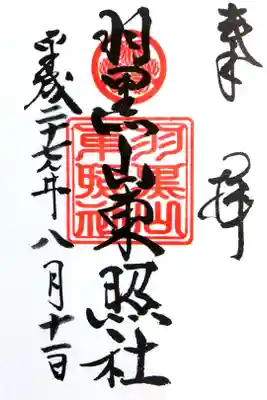 奉拝
羽黒山東照社
羽黒山東照社
平成二十七年八月十一日